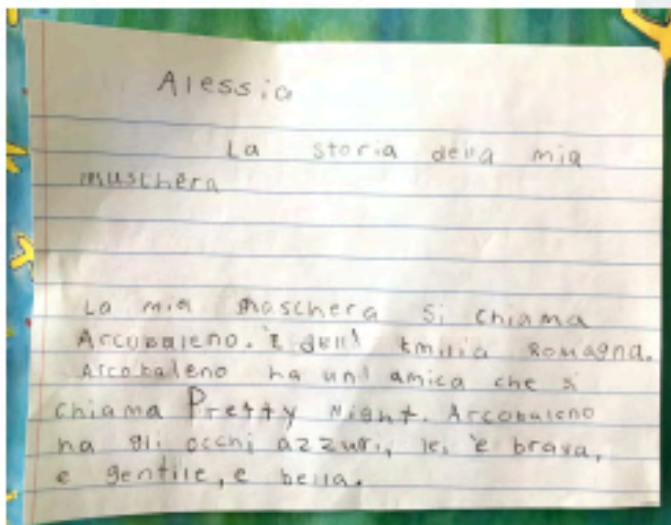 Alessia
La storia della mia
muschera
La mia maschera si chiama
Arcobaleno. È dell' Emilia Romagna.
Arcobaleno ha un' amica che si
chiama Pretty Night. Arcobaleno
ha gli occhi azzuri, lei è brava,
e gentile, e bella.